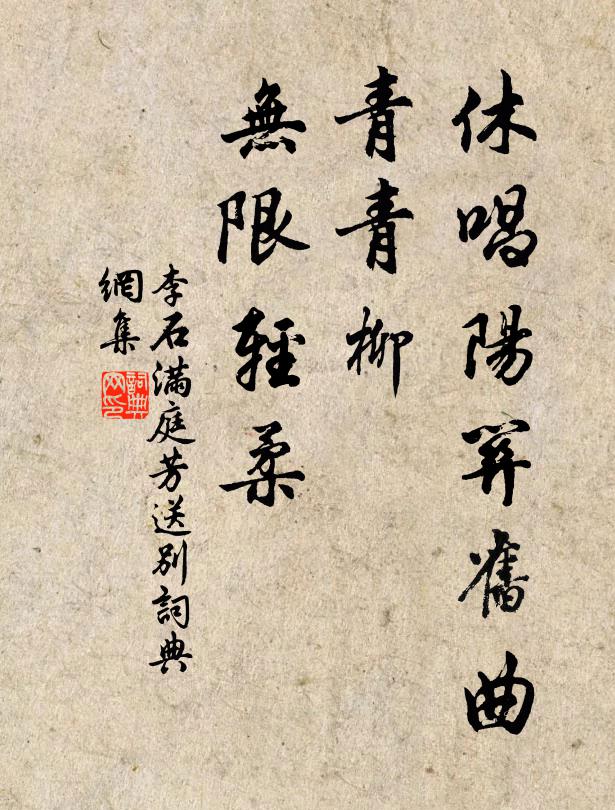 休唱陽関舊曲
青青柳
無限輕柔
李石滿庭芳送別詞典
網集
詞典
网印